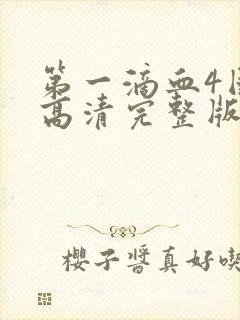 第一滴血4国
高清完整版
櫻子醬真好喫